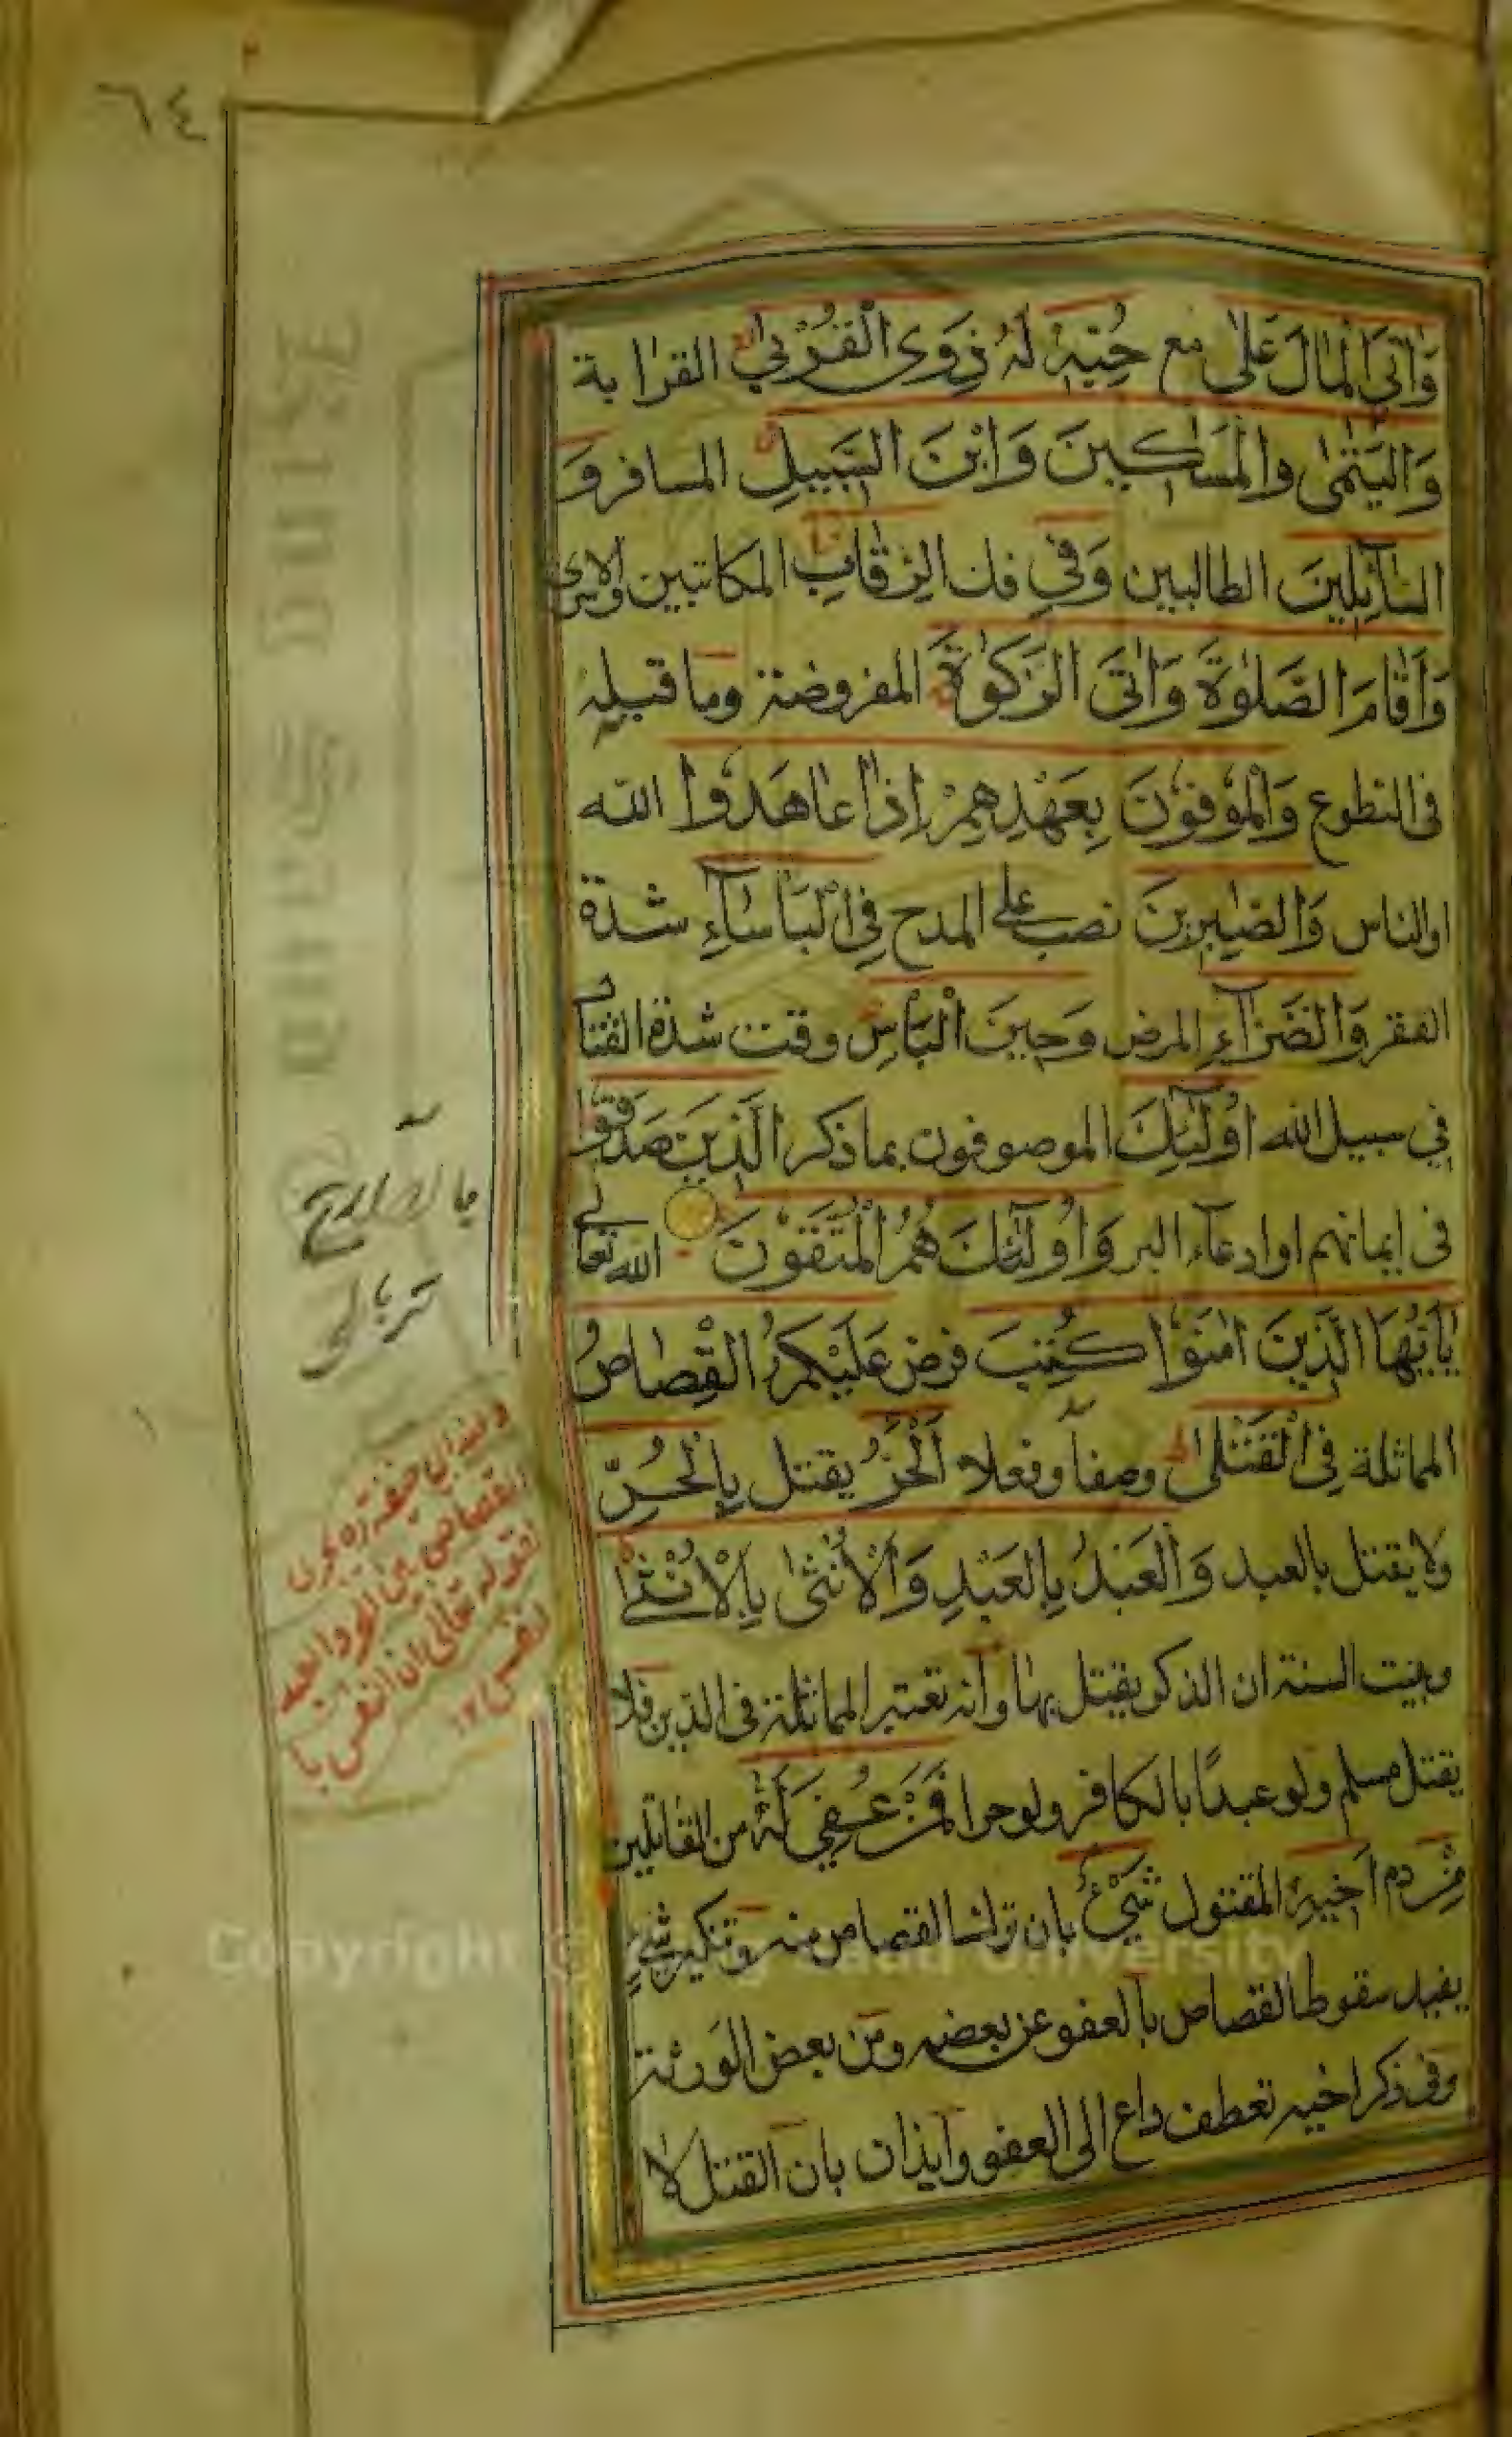 ٦٤
وَاٰتَى الْمَالَ عَلٰى مع حُبِّهٖ لَهُ ذَوِى الْقُرْبٰى القرابة
وَالْيَتٰمٰى وَالْمَسٰاكِينَ وَابْنَ السَّبِيلِ المسافر وَ
السَّآئِلِينَ الطالبين وَفِى فك الرِّقَابِ المكاتبين والاسرى
وَاَقَامَ الصَّلٰوةَ وَاٰتَى الزَّكٰوةَ المفروضة وما قبله
فى التطوع وَالْمُوفُونَ بِعَهْدِهِمْ اِذَا عَاهَدُوا الله
او الناس وَالصّٰبِرِينَ نصب على المدح فِى الْبَاْسَآءِ شدة
الفقر وَالضَّرَّآءِ المرض وَحِينَ الْبَاْسِ وقت شدة القتال
في سبيل الله اُولٰٓئِكَ الموصوفون بما ذكر الَّذِينَ صَدَقُوا
فى ايمانهم او ادعاء البر وَاُولٰٓئِكَ هُمُ الْمُتَّقُونَ الله تعالى
يٰاَيُّهَا الَّذِينَ اٰمَنُوا كُتِبَ فرض عَلَيْكُمُ الْقِصَاصُ
المماثلة فِى الْقَتْلٰى وصفا وفعلا اَلْحُرُّ يقتل بِالْحُرِّ
ولا يقتل بالعبد وَالْعَبْدُ بِالْعَبْدِ وَالْاُنْثٰى بِالْاُنْثٰى
وبينت السنة ان الذكر يقتل بها وانه تعتبر المماثلة فى الدين فلا
يقتل مسلم ولو عبدًا بالكافر ولو حرا فَمَنْ عُفِىَ لَهُ من القاتلين
مِنْ دم اَخِيهِ المقتول شَىْءٌ بان ترك القصاص منه وتنكير شئ
يفيد سقوط القصاص بالعفو عن بعضه ومن بعض الورثة
وفى ذكر اخيه تعطف داع الى العفو وايذان بان القتل لا
وعند ابى حنيفة ره يجرى
القصاص بين الحر والعبد
لقوله تعالى ان النفس با
لنفس ١٢
Copyright © King Saud University